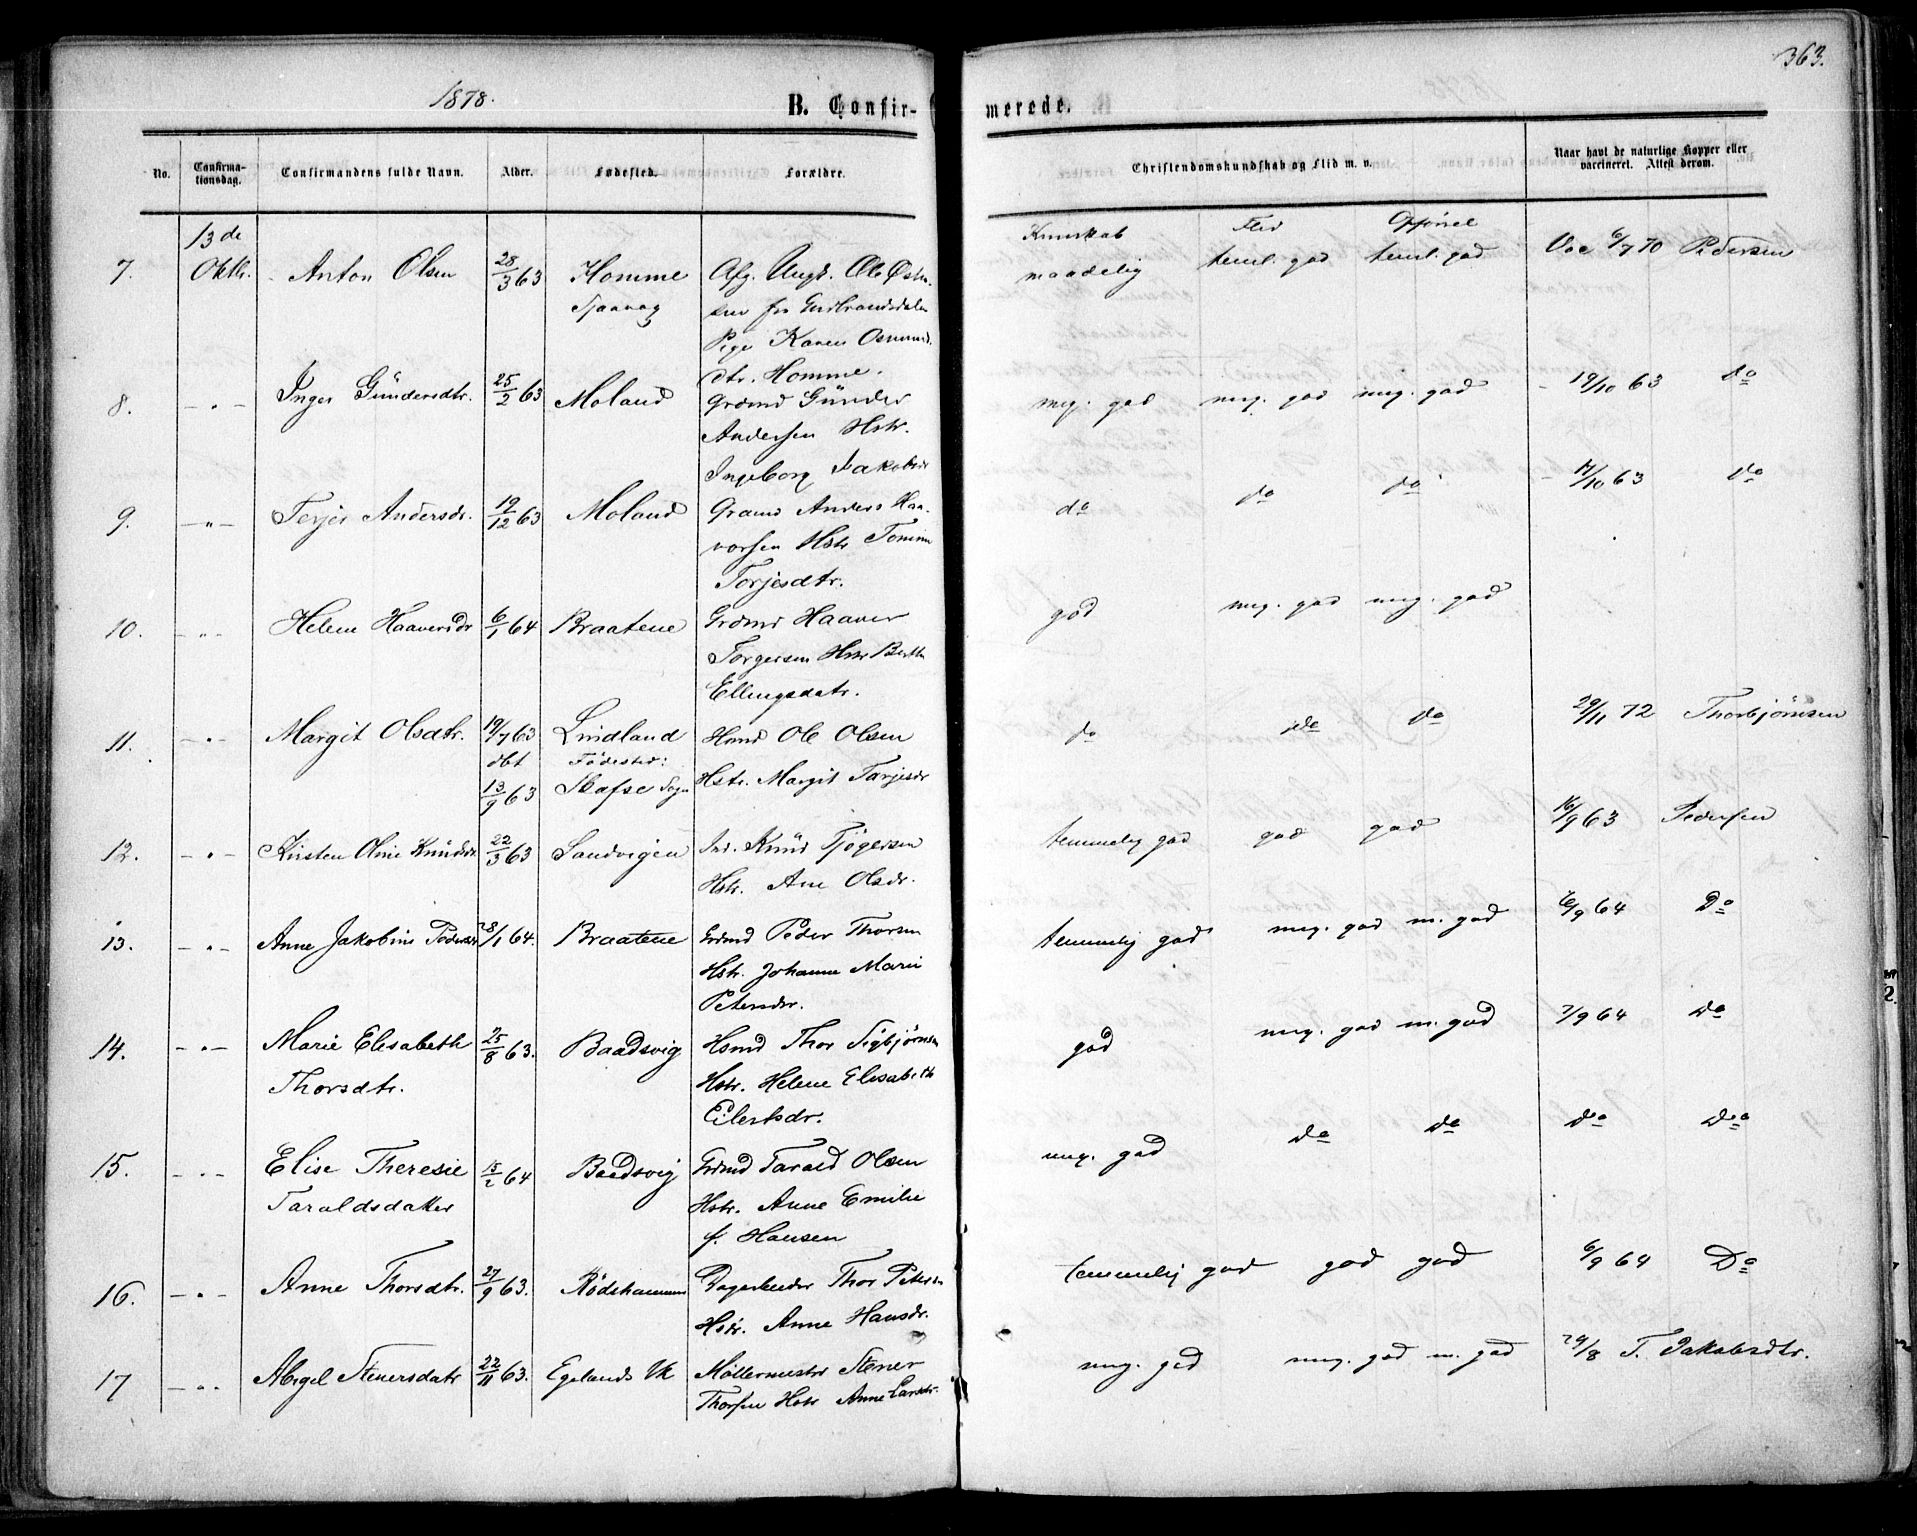 363.
1878.
B. Confir-
merede.
No.
Confirma-
tionsdag.
Confirmandens fulde Navn.
Alder.
Fødested.
Forældre.
Christendomskundskab og Flid m. v.
Naar havt de naturlige Kopper eller
vaccineret. Attest derom.
Kunskab Flid Opførsel
7. 13de Oktb. Anton Olsen 28/3 63 Homme Afg. Ungk. Ole Østen- maadelig teml. god teml. god Vac 6/7 70 Pedersen
Tjaavag sen fra Gudbrandsdalen
Pige Karen Osmund.
dtr. Homme.
8. -"- Inger Gündersdtr. 25/2 63 Moland Grdmd Günder meg. god meg. god meg. god - 19/10 63 do
Andersen Hstr.
Ingeborg Jakobsdr
9. -"- Terjer Andersdr. 19/12 63 Moland Grdmd Anders Haa- do do do - 4/10 63 do
vorsen Hstr Tomine
Torjesdtr.
10. -"- Helene Haaversdr 6/1 64 Braatene Grdmd Haaver god meg. god meg. god
Torgersen Hstr Berthe
Ellingsdatr.
11. -"- Margit Olsdtr. 19/7 63 Lindland Hsmd Ole Olsen do do do 29/11 72 Thorbjørnsen
dbt Fødested:
13/9 63 Skafse Sogn Hstr. Margit Tarjesdr
12. -"- Kirsten Oline Knudsdr 22/3 63 Sandvigen Ind. Knud Tjøgersen temmelig god god god 16/9 63 Pedersen
Hstr. Ane Olsdr.
13. -"- Anne Jakobine Pedersdr 28/1 64. Braatene Grdmd Peder Thorsen temmelig god meg. god m. god 6/9 64 Do
Hstr. Johanne Marie
Petersdr.
14. -"- Marie Elisabeth 25/8 63. Baadsvig Hsmd Thor Sigbjørnsen god meg. god m. god 7/9 64 do
Thorsdtr. Hstr. Helene Elisabeth
Eilertsdr.
15. -"- Elise Theresie 15/2 64 Baadsvig Grdmd Tarald Olsen meg. god do do do do
Taraldsdatter Hstr. Anne Emilie
f. Hansen
16. -"- Anne Thorsdtr. 27/9 63. Rødshammer Dagarbeider Thor Petersen temmelig god god god 6/9 64 Do
Hstr. Anne Hansdr.
17 -"- Abigel Stenersdatr 22/11 63. Egelands Vk Møllermester Stener meg. god meg. god m. god 29/8 T. Jakobsdtr.
Thorsen Hstr Anne Larsdr.